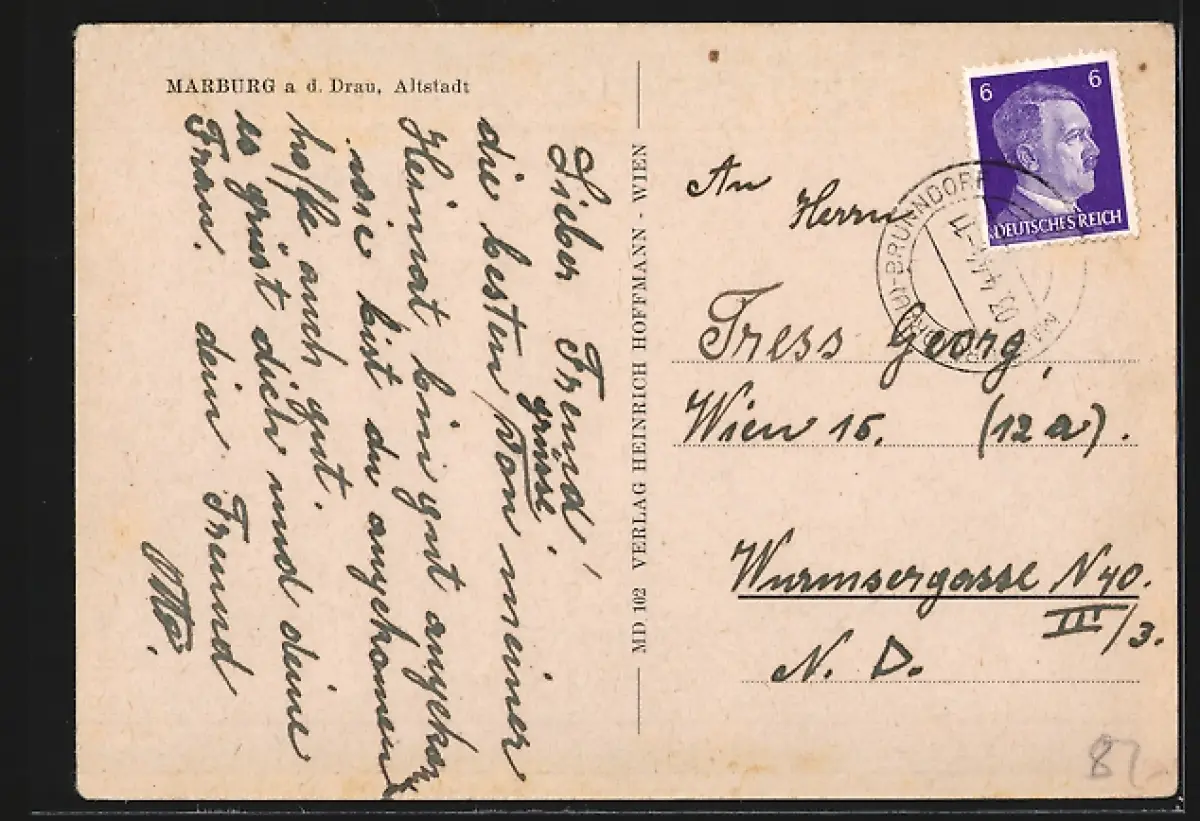 MARBURG a d. Drau, Altstadt
Lieber Freund!
die besten grüsse von meiner
Heimat, bin gut angekom
wie bist du angekomen
hoffe auch gut.
es grüsst dich und deine
Frau. dein Freund
Otto.
MD 102 VERLAG HEINRICH HOFFMANN - WIEN
6 6
DEUTSCHES REICH
An
Herrn
Fress Georg,
Wien 15. (12a).
Wurmsergasse N 40.
III/3.
N. D.